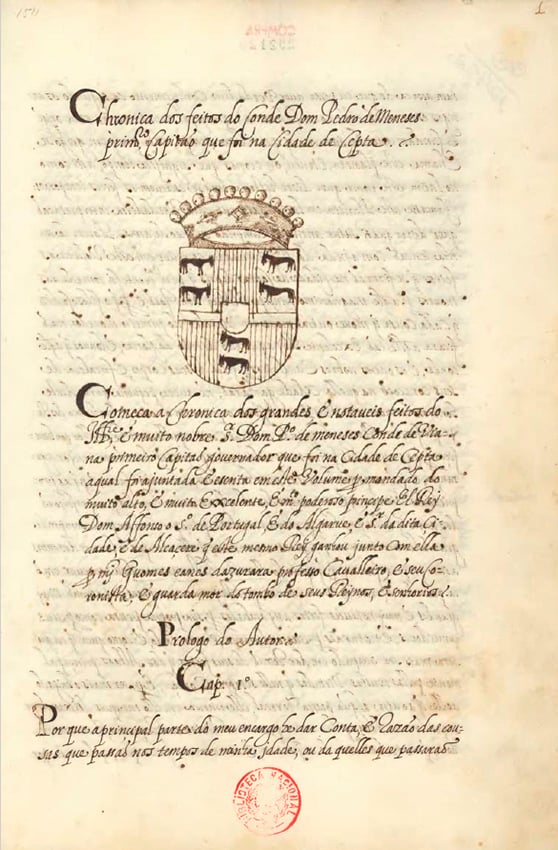 1
COMPRA
Chronica dos feitos do Conde Dom Pedro de Meneses
primro Capitão que foi na Cidade de Cepta
Comeca a Coronica dos grandes E notaveis feitos do
Illre E muito nobre Sr. Dom Po. de meneses Conde de Via-
na primeiro Capitaõ governador que foi na Cidade de Cepta
aqual foi ajuntada E escrita em este Volume p mandado do
muito alto, E muito Excelente, E mto poderozo principe El Rey
Dom Affonso o 5o. de Portugal, E do Algarve, E Sr. da dita Ci-
dade, E de Alcacere q elle mesmo Rey ganhou junto com ella
p my Guomes eanes dazurara professo Cavalleiro, E seu Co-
ronista, E guarda mor do tombo de seus Reynos, E senhorios
Prologo do Autor
Cap. 1o.
Por que a principal parte do meu encargo he dar Conta, E Razaõ das cou-
sas que passaõ nos tempos de minha Idade, ou da quelles que passaraõ
BIBLIOTECA NACIONAL